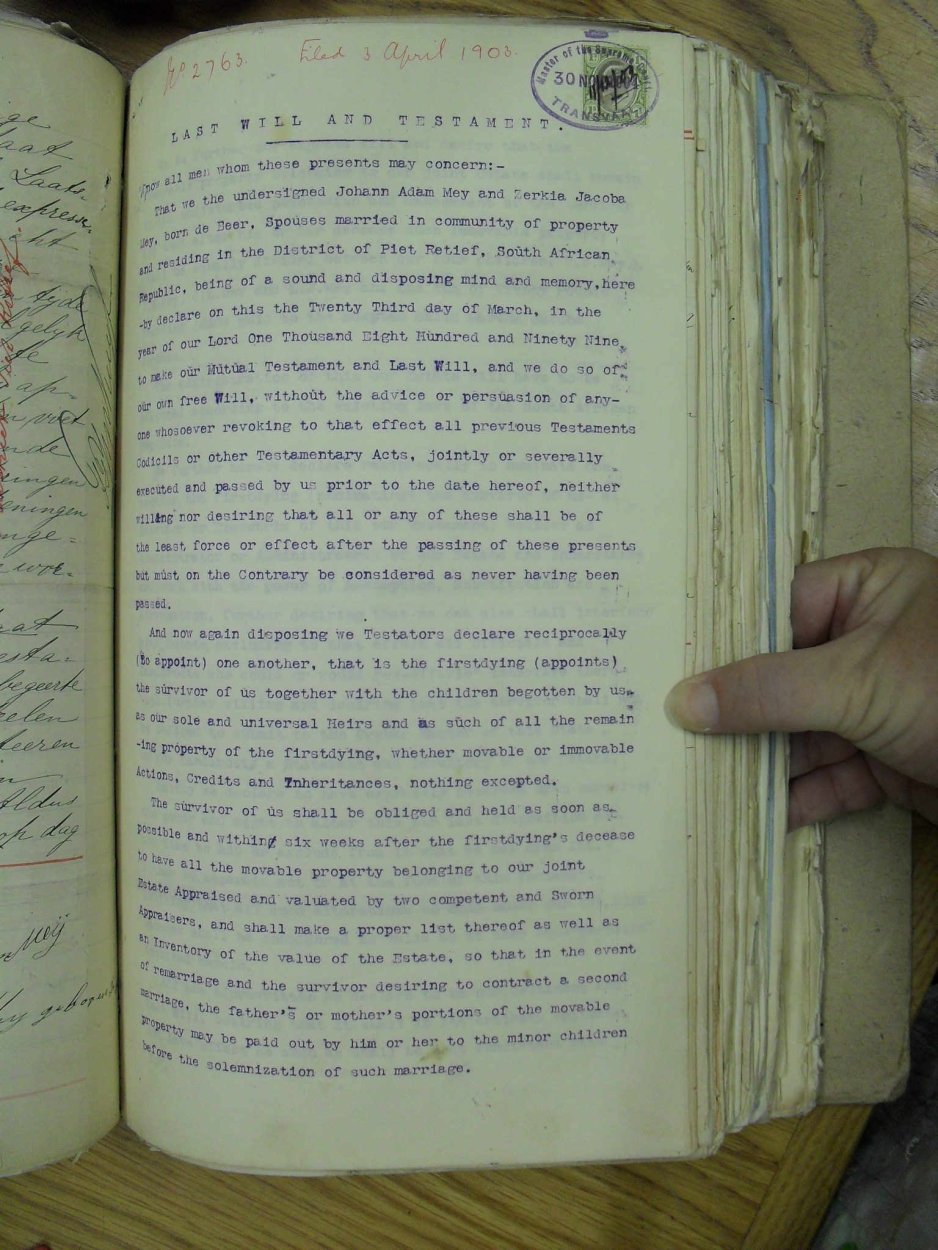 No 2763. Filed 3 April 1903.
Master of the Supreme Court
30 NOV
TRANSVAAL
LAST WILL AND TESTAMENT.
Know all men whom these presents may concern:-
That we the undersigned Johann Adam Mey and Zerkia Jacoba
Mey, born de Beer, Spouses married in community of property
and residing in the District of Piet Retief, South African
Republic, being of a sound and disposing mind and memory, here
-by declare on this the Twenty Third day of March, in the
year of our Lord One Thousand Eight Hundred and Ninety Nine,
to make our Mutual Testament and Last Will, and we do so of
our own free Will, without the advice or persuasion of any-
one whosoever revoking to that effect all previous Testaments
Codicils or other Testamentary Acts, jointly or severally
executed and passed by us prior to the date hereof, neither
willing nor desiring that all or any of these shall be of
the least force or effect after the passing of these presents
but must on the Contrary be considered as never having been
passed.
And now again disposing we Testators declare reciprocally
(to appoint) one another, that is the firstdying (appoints)
the survivor of us together with the children begotten by us
as our sole and universal Heirs and as such of all the remain
-ing property of the firstdying, whether movable or immovable
Actions, Credits and Inheritances, nothing excepted.
The survivor of us shall be obliged and held as soon as
possible and within six weeks after the firstdying's decease
to have all the movable property belonging to our joint
Estate Appraised and valuated by two competent and Sworn
Appraisers, and shall make a proper list thereof as well as
an Inventory of the value of the Estate, so that in the event
of remarriage and the survivor desiring to contract a second
marriage, the father's or mother's portions of the movable
property may be paid out by him or her to the minor children
before the solemnization of such marriage.
aat
Laats-
expresse-
tyde
gelyk
te
ap-
nde
ningen
eningen
nge-
wor-
rat
esta-
begeerte
eelen
teeren
Aldus
op dag
Meÿ